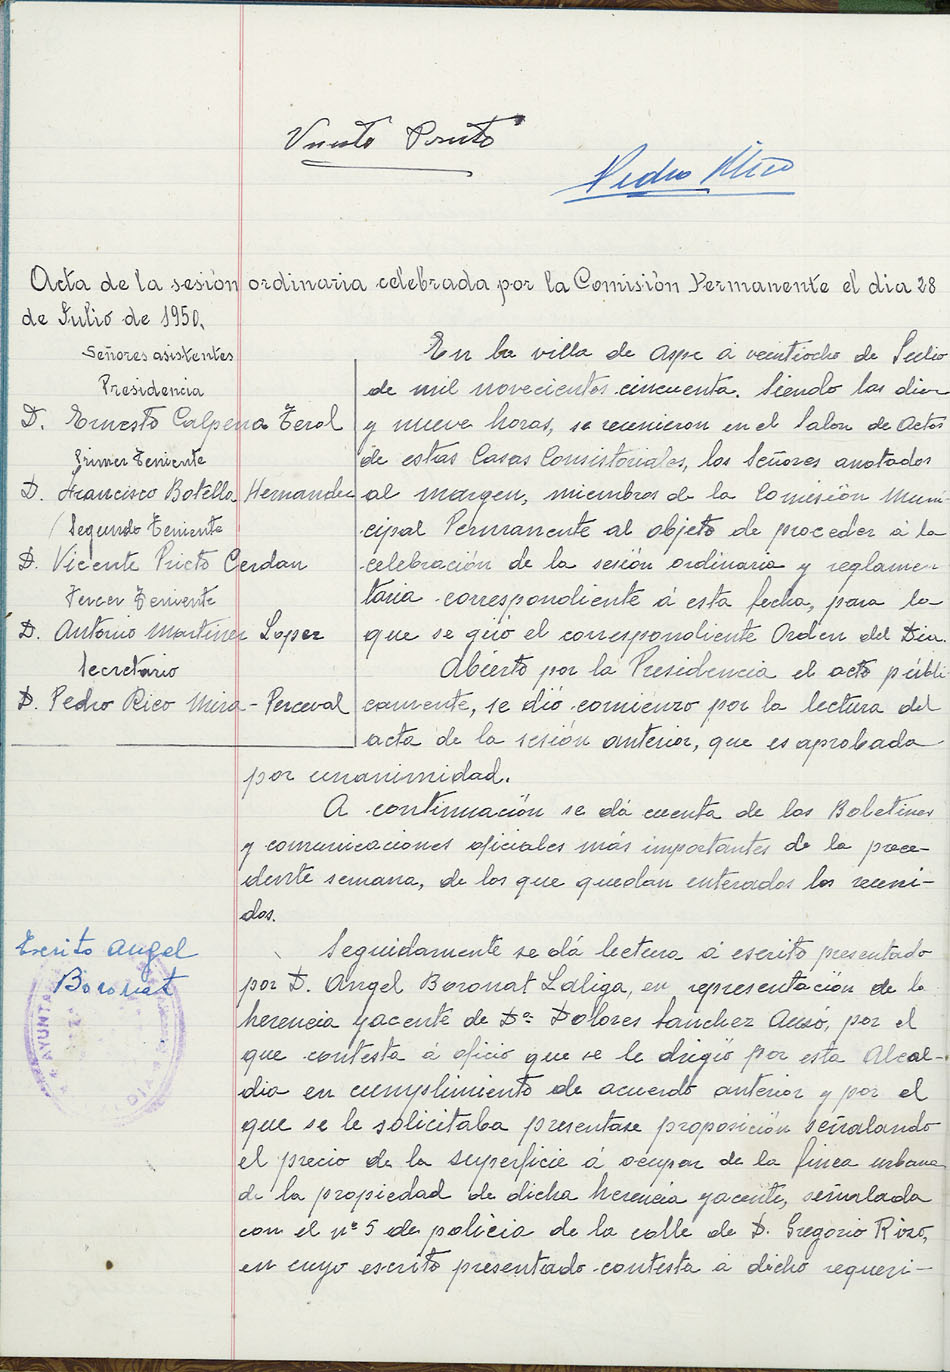 Vicente Prieto
Pedro Rico
Acta de la sesión ordinaria celebrada por la Comisión Permanente el dia 28
de Julio de 1950.
Señores asistentes
Presidencia
D. Ernesto Calpena Terol
Primer Teniente
D. Francisco Botella Hernandez
Segundo Teniente
D. Vicente Prieto Cerdan
Tercer Teniente
D. Antonio Martinez Lopez
Secretario
D. Pedro Rico Mira-Perceval
En la villa de Aspe á veintiocho de Julio
de mil novecientos cincuenta. Siendo las diez
y nueve horas, se reunieron en el Salon de Actos
de estas Casas Consistoriales, los Señores anotados
al margen, miembros de la Comisión Muni-
cipal Permanente al objeto de proceder á la
celebración de la sesión ordinaria y reglamen-
taria correspondiente á esta fecha, para la
que se giró el correspondiente Orden del Dia.
Abierto por la Presidencia el acto públi-
camente, se dió comienzo por la lectura del
acta de la sesión anterior, que es aprobada
por unanimidad.
A continuación se dá cuenta de los Boletines
y comunicaciones oficiales más importantes de la prece-
dente semana, de los que quedan enterados los reuni-
dos.
Escrito Angel
Boronat
AYUNTA
Seguidamente se dá lectura á escrito presentado
por D. Angel Boronat Laliga, en representación de la
herencia yacente de Dª Dolores Sanchez Ausó, por el
que contesta á oficio que se le dirigió por esta Alcal-
dia en cumplimiento de acuerdo anterior y por el
que se le solicitaba presentase proposición señalando
el precio de la superficie á ocupar de la finca urbana
de la propiedad de dicha herencia yacente, señalada
con el nº 5 de policia de la calle de D. Gregorio Rizo,
en cuyo escrito presentado contesta á dicho requeri-